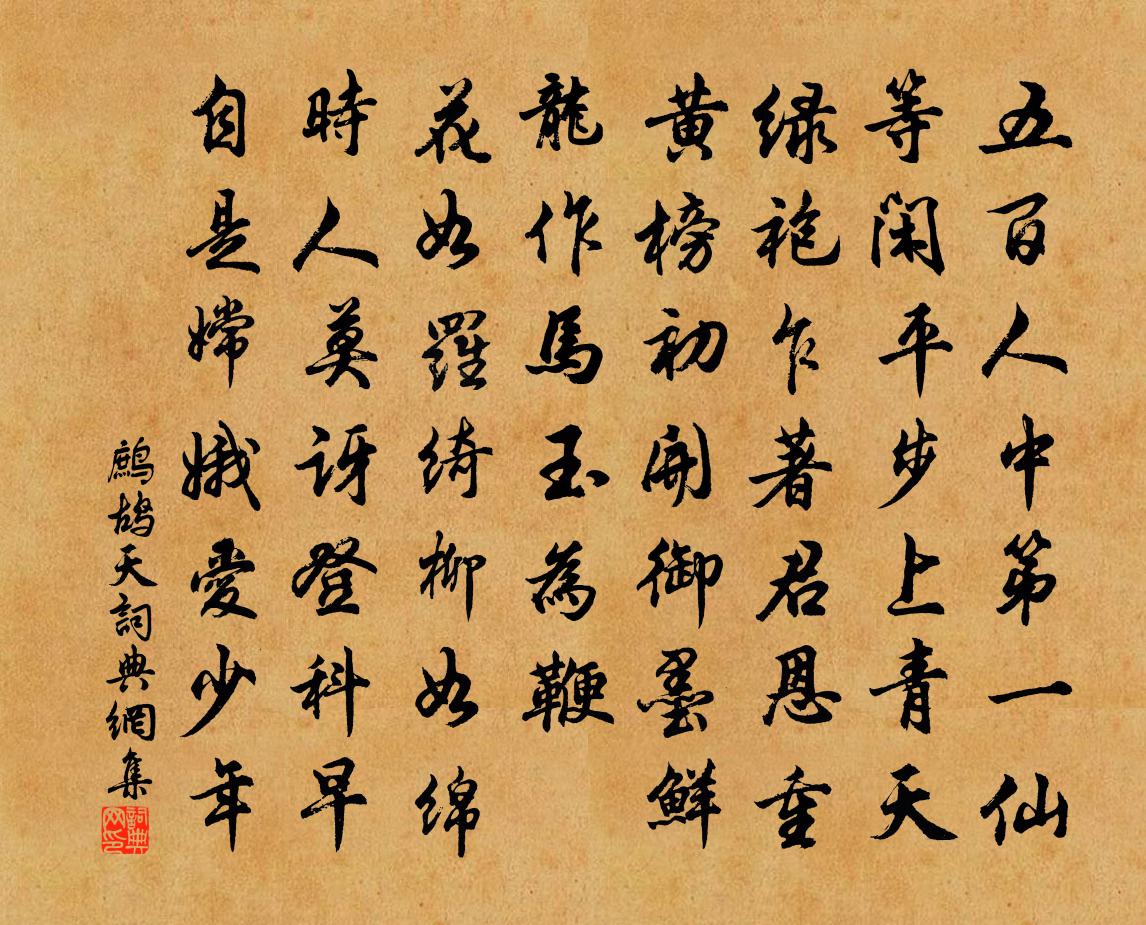 五百人中第一仙
等閑平步上青天
緑袍乍著君恩重
黃榜初開御墨鮮
龍作馬玉為鞭
花如羅綺柳如綿
時人莫訝登科早
自是嫦娥愛少年
鷓鴣天詞典網集
詞典網印